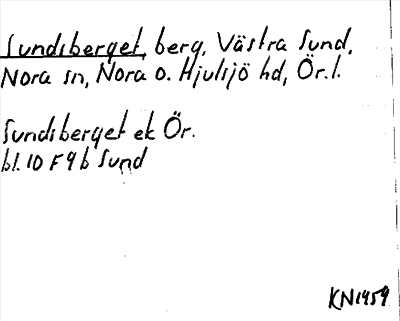 Sundsberget, berg, Västra Sund,
Nora sn, Nora o. Hjulsjö hd, Ör.l.
Sundsberget ek Ör.
bl. 10 F 9 b Sund
KN1959